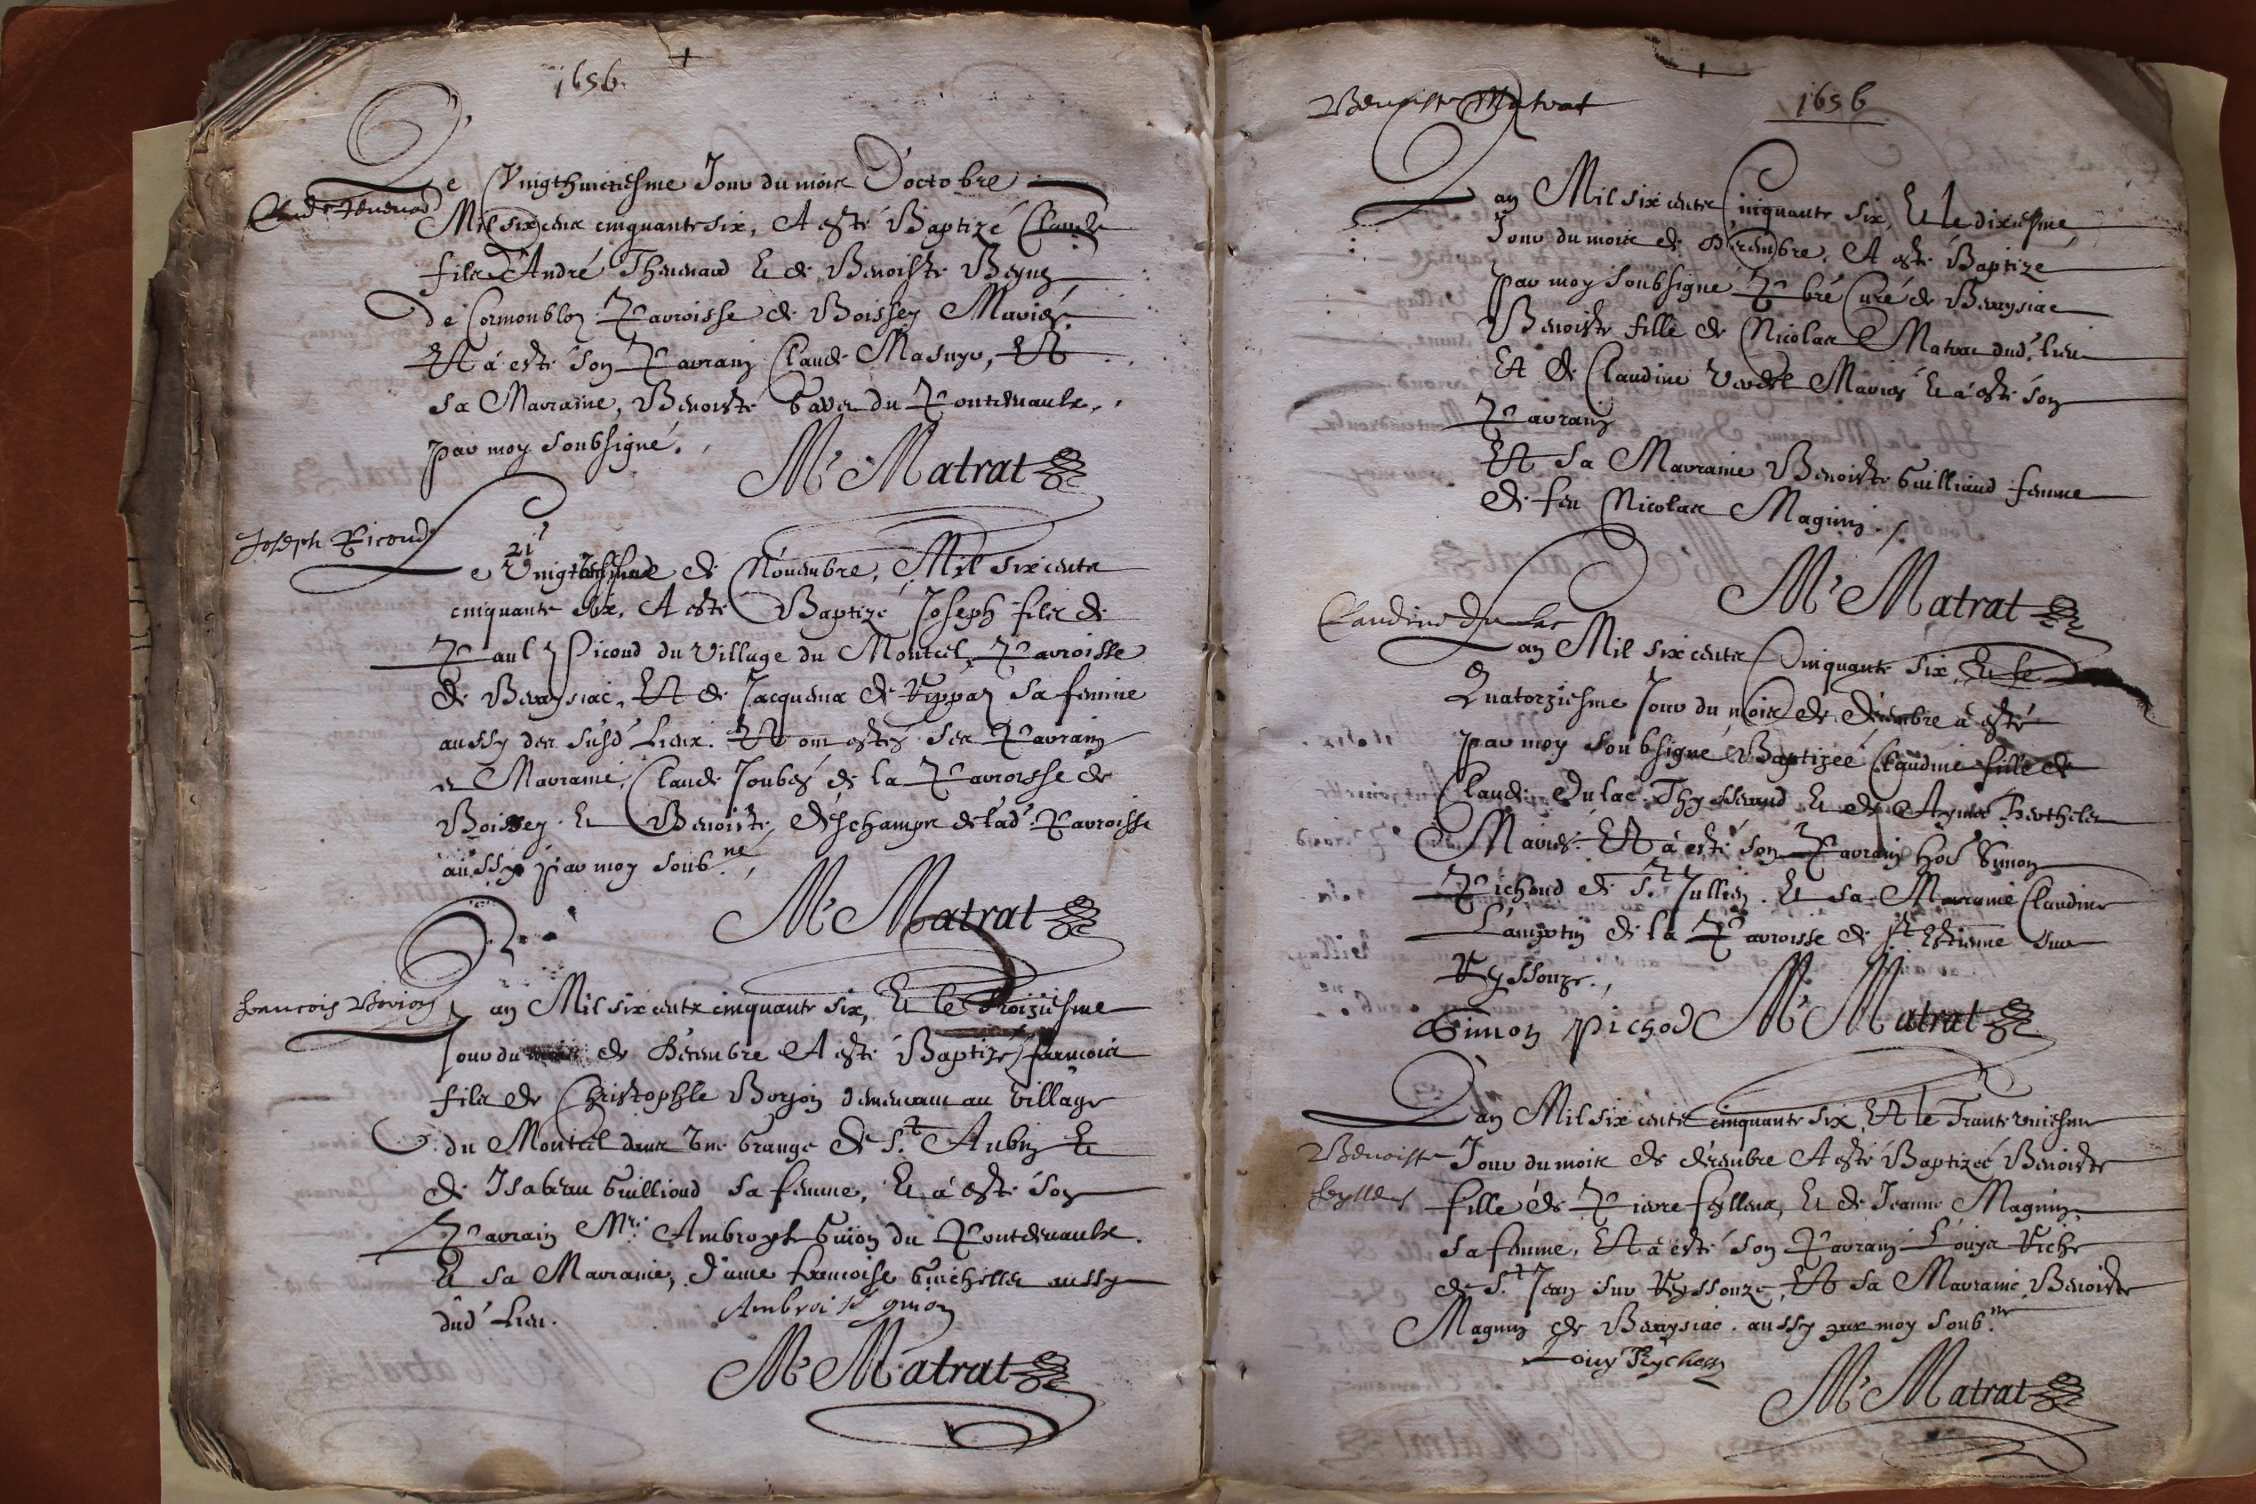 1656
Le Vingthuictiesme Jour du mois D'octobre
Mil six cens cinquante six, A esté Baptizé Claude
fils d'André Thevenard Et de Benoiste
de Cormonbloz Parroisse de Boissey Mariés.
Et à esté son Parrain Claude Masuyr, Et
sa Marraine, Benoiste du Pontdevaulx.
par moy soubsigné.
M. Matrat
Joseph Picoud
21
Le de Novembre, Mil six cents
cinquante six, A esté Baptizé Joseph fils de
Paul Picoud du Village du Montcel, Parroisse
de Bereysiac, Et de Jacquema de sa femme
aussy des susd. Lieux. Et ont estés ses Parrain
et Marraine, Claude de la Parroisse de
Boissey Et Benoiste deschamps de lad. Parroisse
aussy par moy soub.né
M. Matrat
françois Borjon
L'an Mil six cents cinquante six, Et le Troiziesme
Jour du mois de Décembre A esté Baptizé françois
fils de Christophle Borjon demeurant au Village
du Montcel dans Une Grange de St. Aubin Et
de Isabeau Guillioud sa femme, Et à esté son
Parrain Mr. Ambroyse Guion du Pontdevaulx.
Et sa Marraine, dame francoise aussy
dud. Lieu.
Ambroise guion
M. Matrat
Benoiste Matrat
1656
L'an Mil six cents Cinquante six, Et le dixiesme
Jour du mois de Décembre, A esté Baptizé
par moy soubsigné Pbre Curé de Bereysiac
Benoiste fille de Nicolas Matrat dud. lieu
Et de Claudine Verdet Mariés Et à esté son
Parrain
Et sa Marraine Benoiste Guilliaud femme
de feu Nicolas Magnin.
M. Matrat
Claudine du Lac
L'an Mil six cents Cinquante six, Et le
Quatorziesme Jour du mois de décembre à esté
par moy soubsigné Baptizée Claudine fille de
Claude Dulac Thysserand Et de Berthelet
Mariés. Et à esté son Parrain hos. Simon
Pichoud de St. Jullien. Et sa Marraine Claudine
de la Parroisse de St Estienne sur
Reyssouze.
Simon Pichod M. Matrat
L'an Mil six cents cinquante six, Et le Trante uniesme
Benoiste
Jour du mois de décembre A esté Baptizée Benoiste
feylleus
fille de Pierre feylleux, Et de Jeanne Magnin
sa femme, Et à esté son Parrain Louys Riche
de St. Jean sur Reyssouze, Et sa Marraine Benoiste
Magnin de Bereysiac. aussy par moy soub.né
Louy
M. Matrat